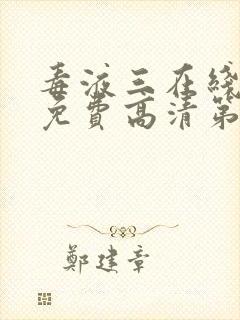 毒液三在线
免费高清第
鄭建章